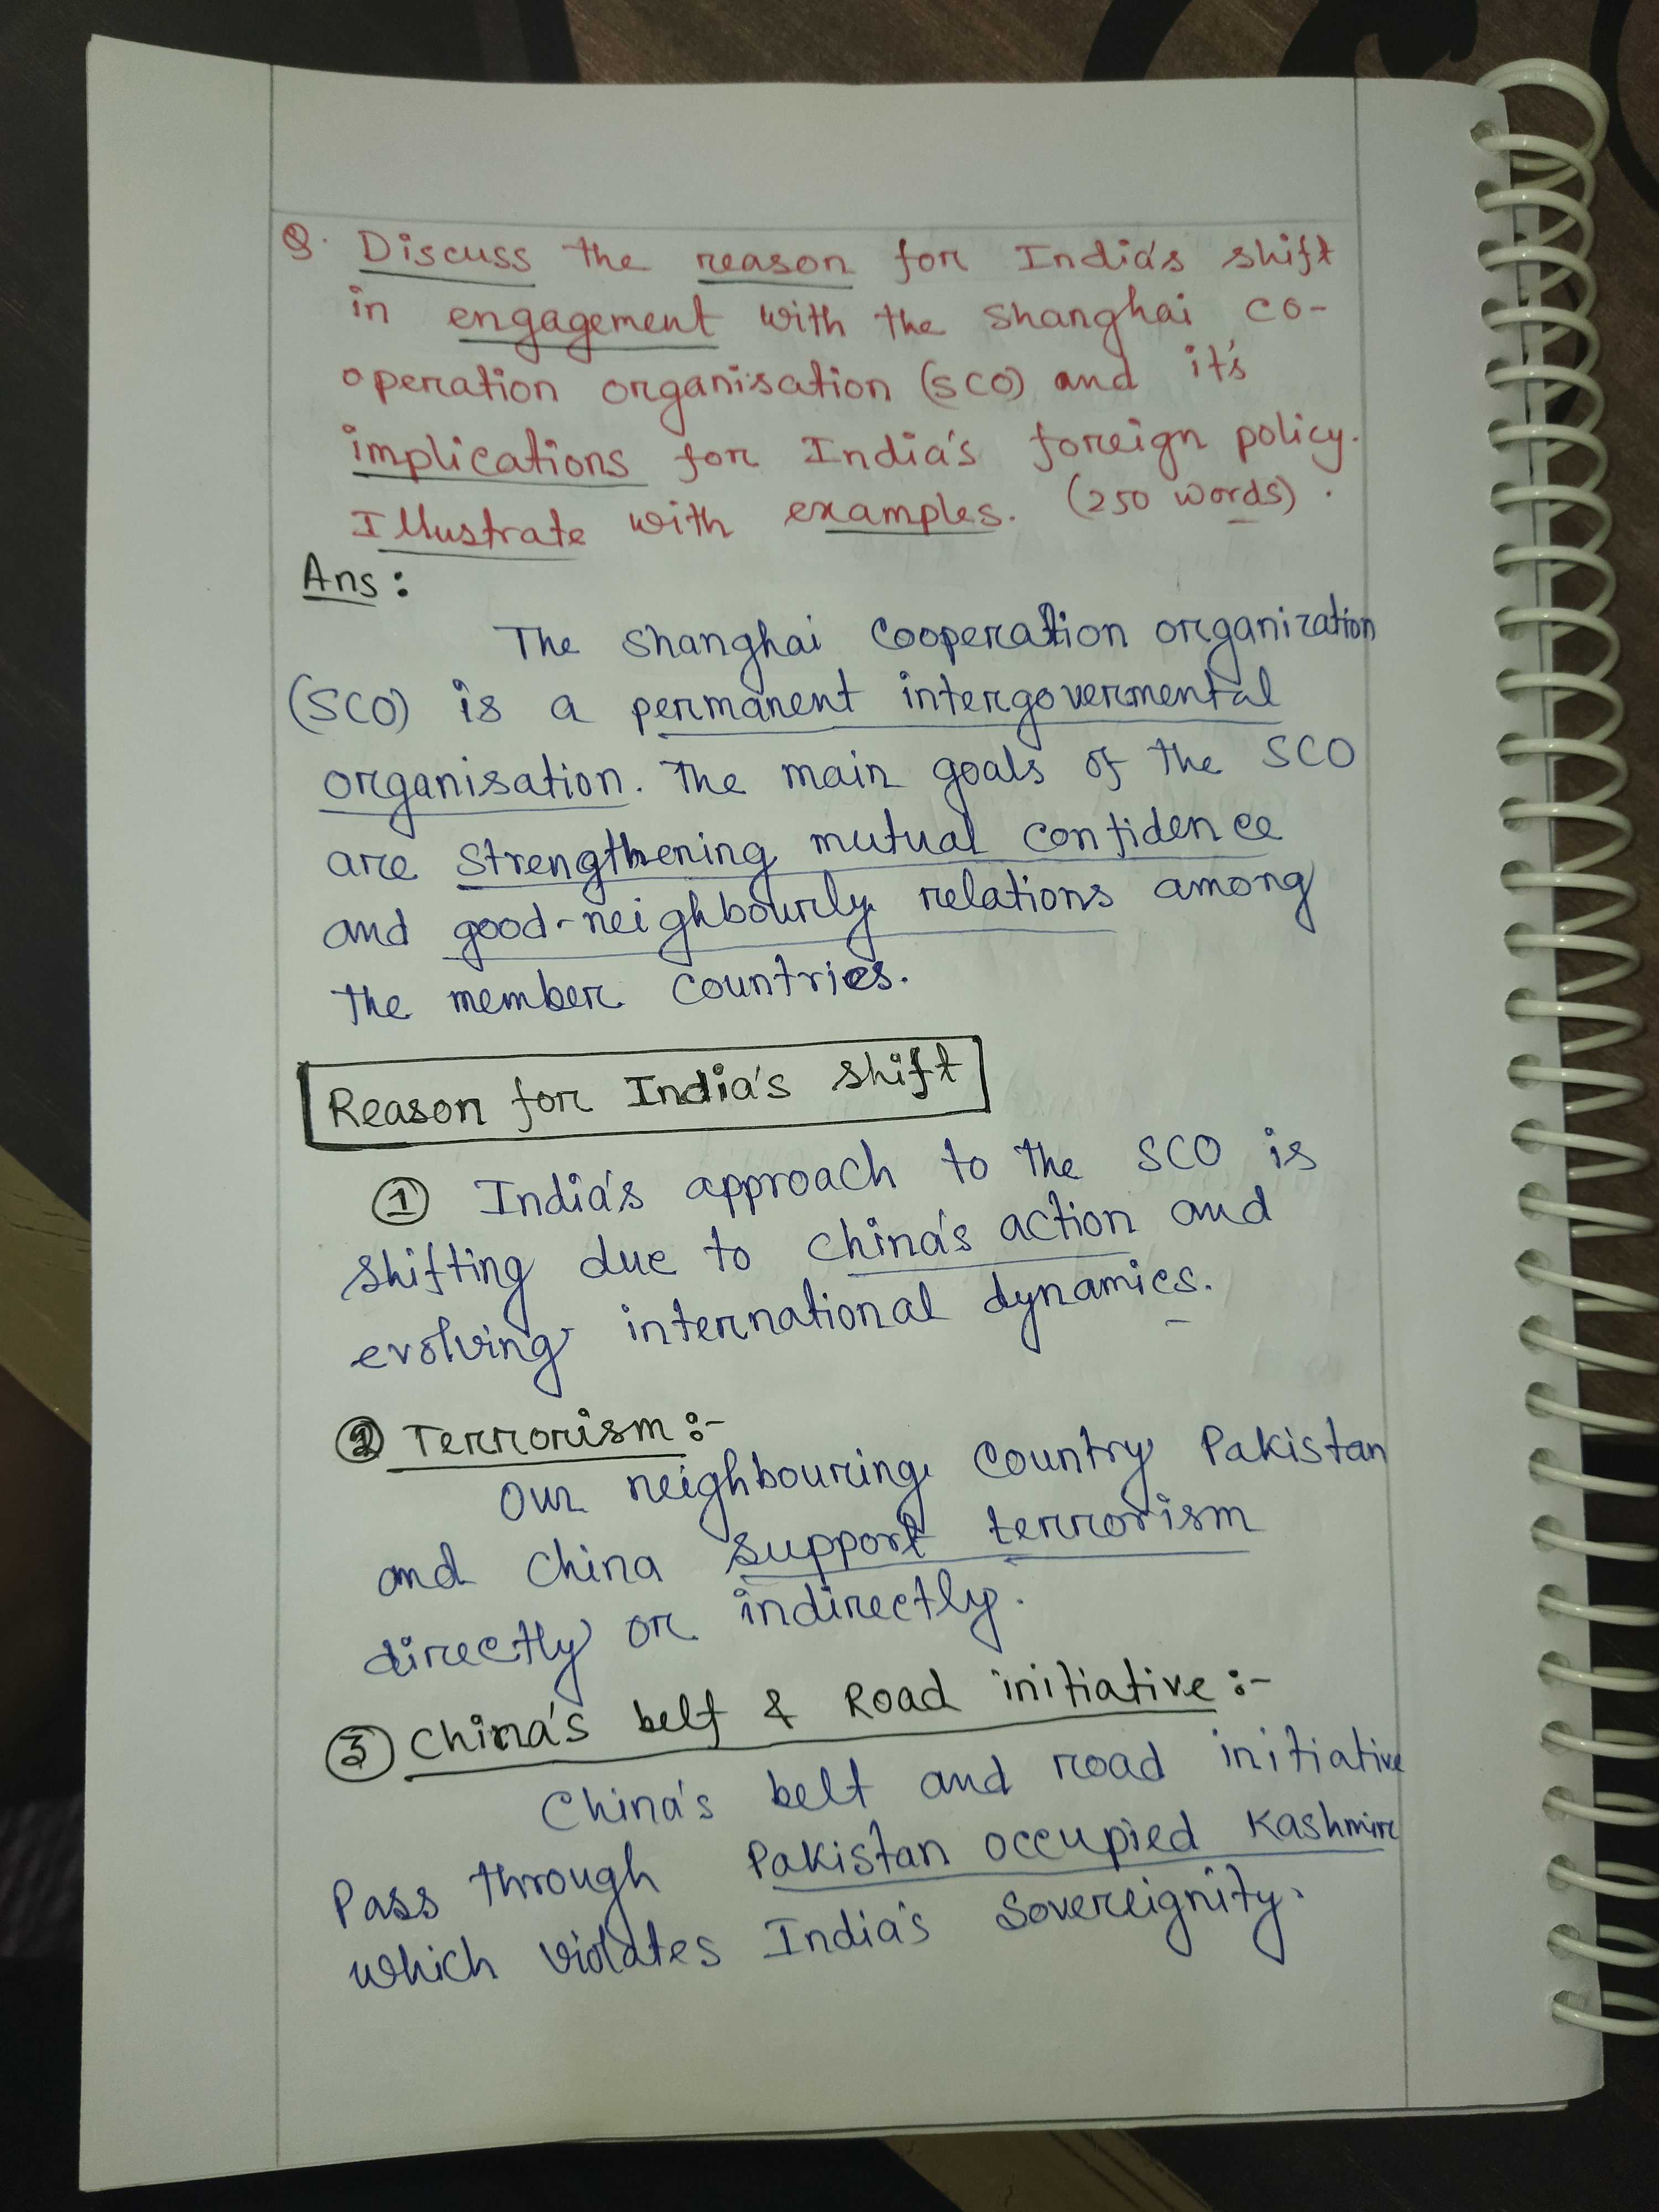 Q. Discuss the reason for India's shift
in engagement with the Shanghai co-
operation organisation (SCO) and it's
implications for India's foreign policy.
Illustrate with examples. (250 words).
Ans:
The Shanghai Cooperation organization
(SCO) is a permanent intergovermental
organisation. The main goals of the SCO
are strengthening mutual confidence
and good-neighbourly relations among
the member countries.
Reason for India's shift
① India's approach to the SCO is
shifting due to china's action and
evolving international dynamics.
② Terrorism:-
Our neighbouring country Pakistan
and china support terrorism
directly or indirectly.
③ China's belt & Road initiative:-
China's belt and road initiative
Pass through Pakistan occupied Kashmir
which violates India's Sovereignity.